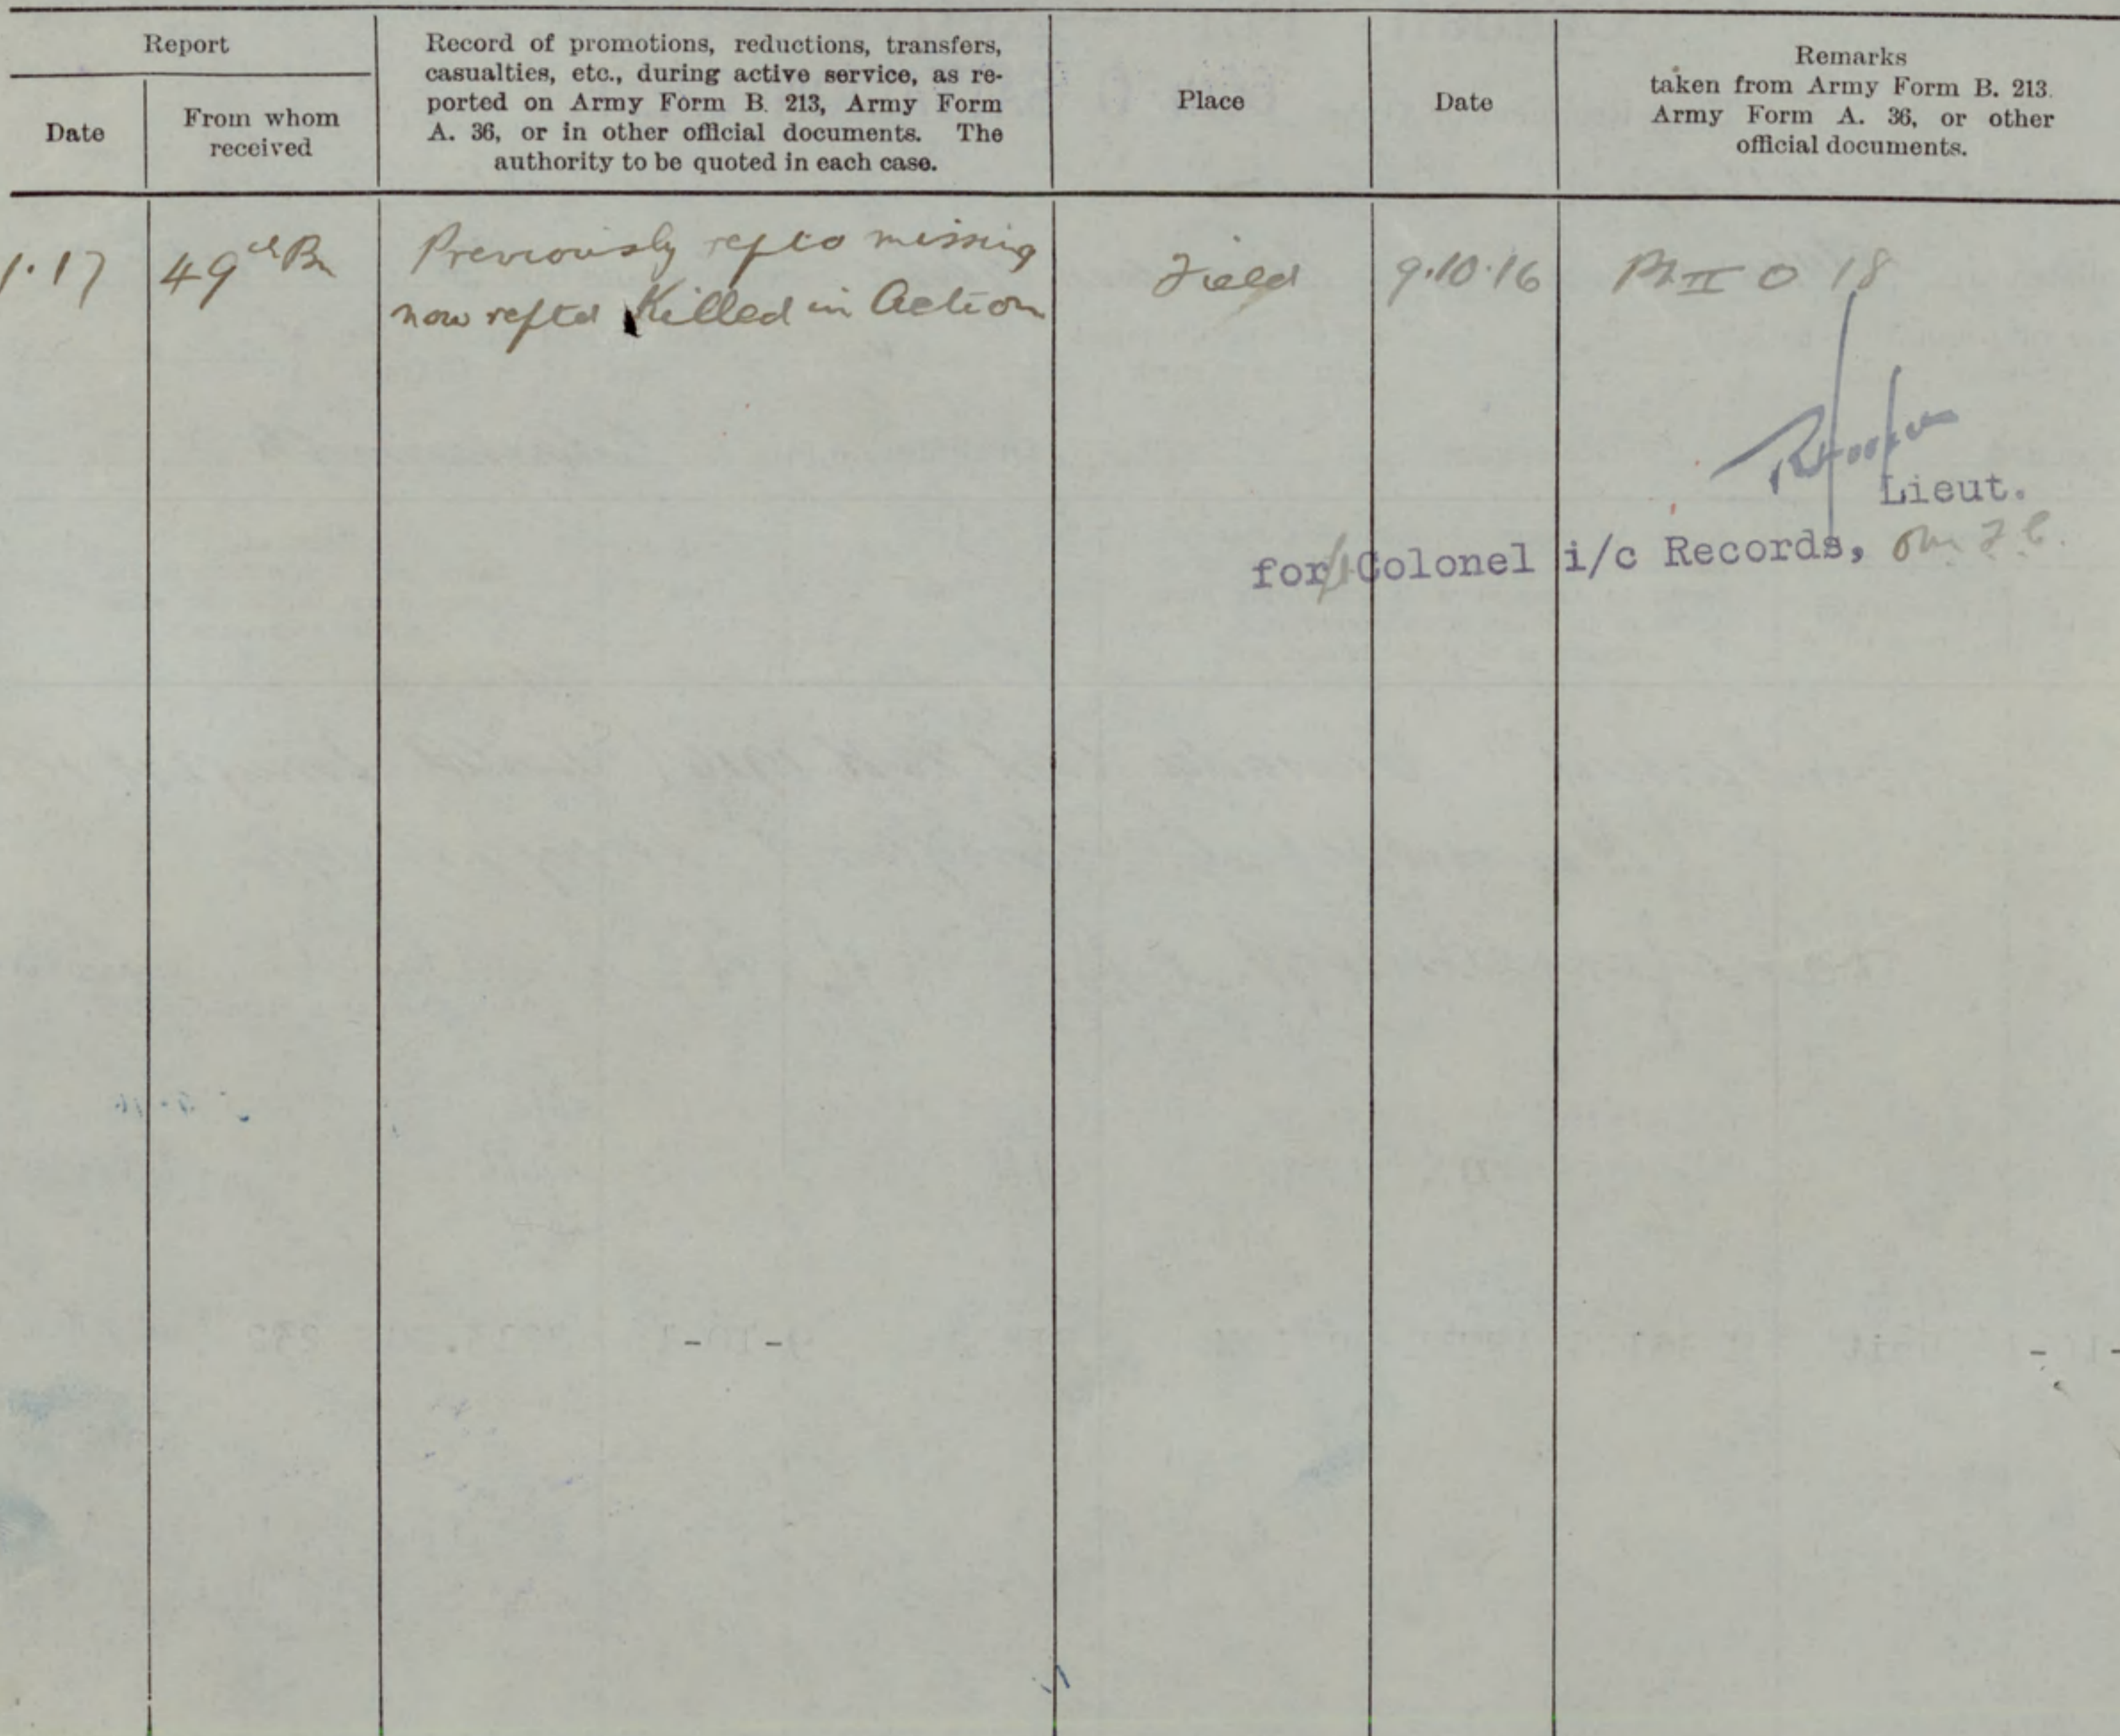 Report
Date
From whom
received
Record of promotions, reductions, transfers,
casualties, etc., during active service, as re-
ported on Army Form B. 213, Army Form
A. 36, or in other official documents. The
authority to be quoted in each case.
Place
Date
Remarks
taken from Army Form B. 213.
Army Form A. 36, or other
official documents.
1.17
49th Bn
Previously reptd missing
now reptd Killed in Action
Field
9.10.16
Pt II O 18
Lieut.
for Colonel i/c Records,